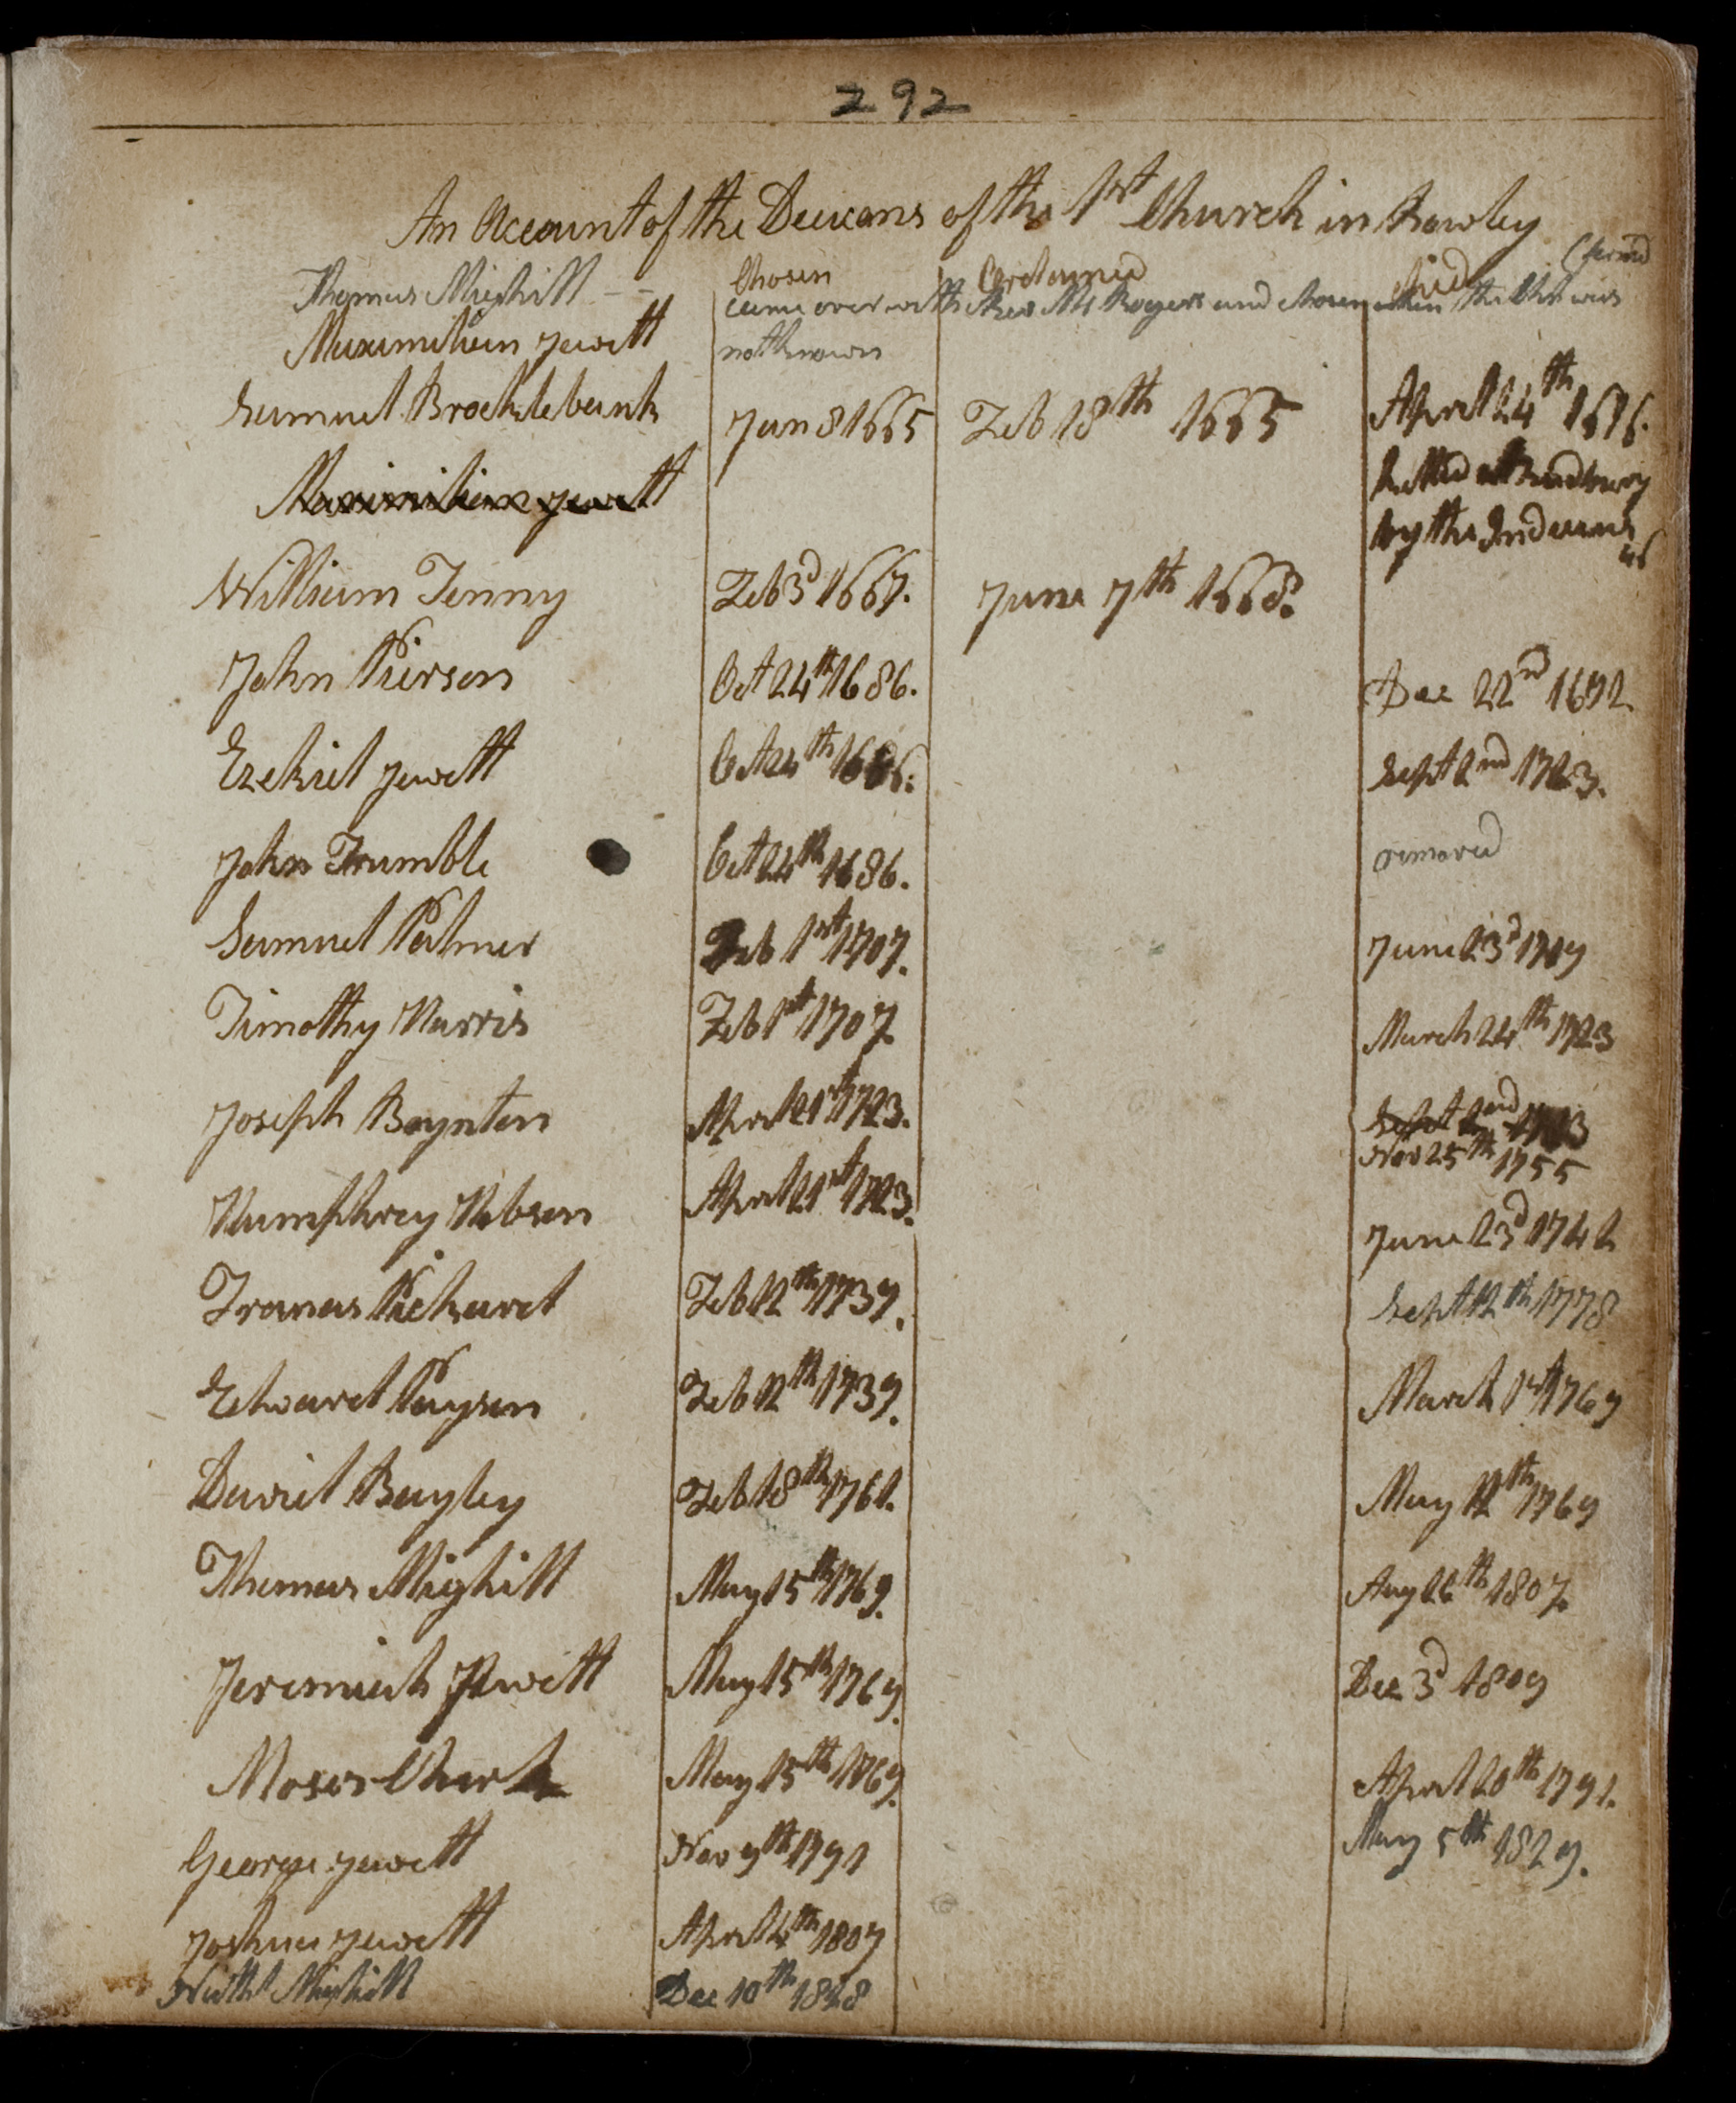 292
An Account of the Deacons of the 1rst Church in Rowley
Chosen Ordained died (formed
Thomas Mighill - - came over with Rev Mr Rogers and chosen when the Chh was
Maximilian Jewett not known
Samuel Brocklebank Jan 8 1665 Feb 18th 1665 April 24th 1676.
killed at Sudbury
by the Indians
Maximilian Jewett
William Tenny Feb 3d 1667. June 7th 1668.
John Pierson Oct 24th 1686. Dec 22nd 1692
Ezekiel Jewett Oct 24th 1686. Sept 2nd 1723.
John Trumble Oct 24th 1686. removed
Samuel Palmer Feb 1rst 1707. June 23d 1719
Timothy Harris Feb 1st 1707. March 24th 1723
Joseph Boynton April 21rst 1723. Sept 2nd 1723
Nov 25th 1755
Humphrey Hobson April 21rst 1723. June 23d 1742
Francis Pickard Feb 12th 1739. Sept 12th 1778
Edward Payson Feb 12th 1739. March 1rst 1769
David Bayley Feb 18th 1761. May 12th 1769
Thomas Mighill May 15th 1769. Aug 26th 1807.
Jeremiah Jewett May 15th 1769. Dec 3d 1809
Moses Clark May 15th 1769. April 20th 1791.
George Jewett Nov 9th 1791 May 5th 1829.
Joshua Jewett April 4th 1807
Nathl Mighill Dec 10th 1828